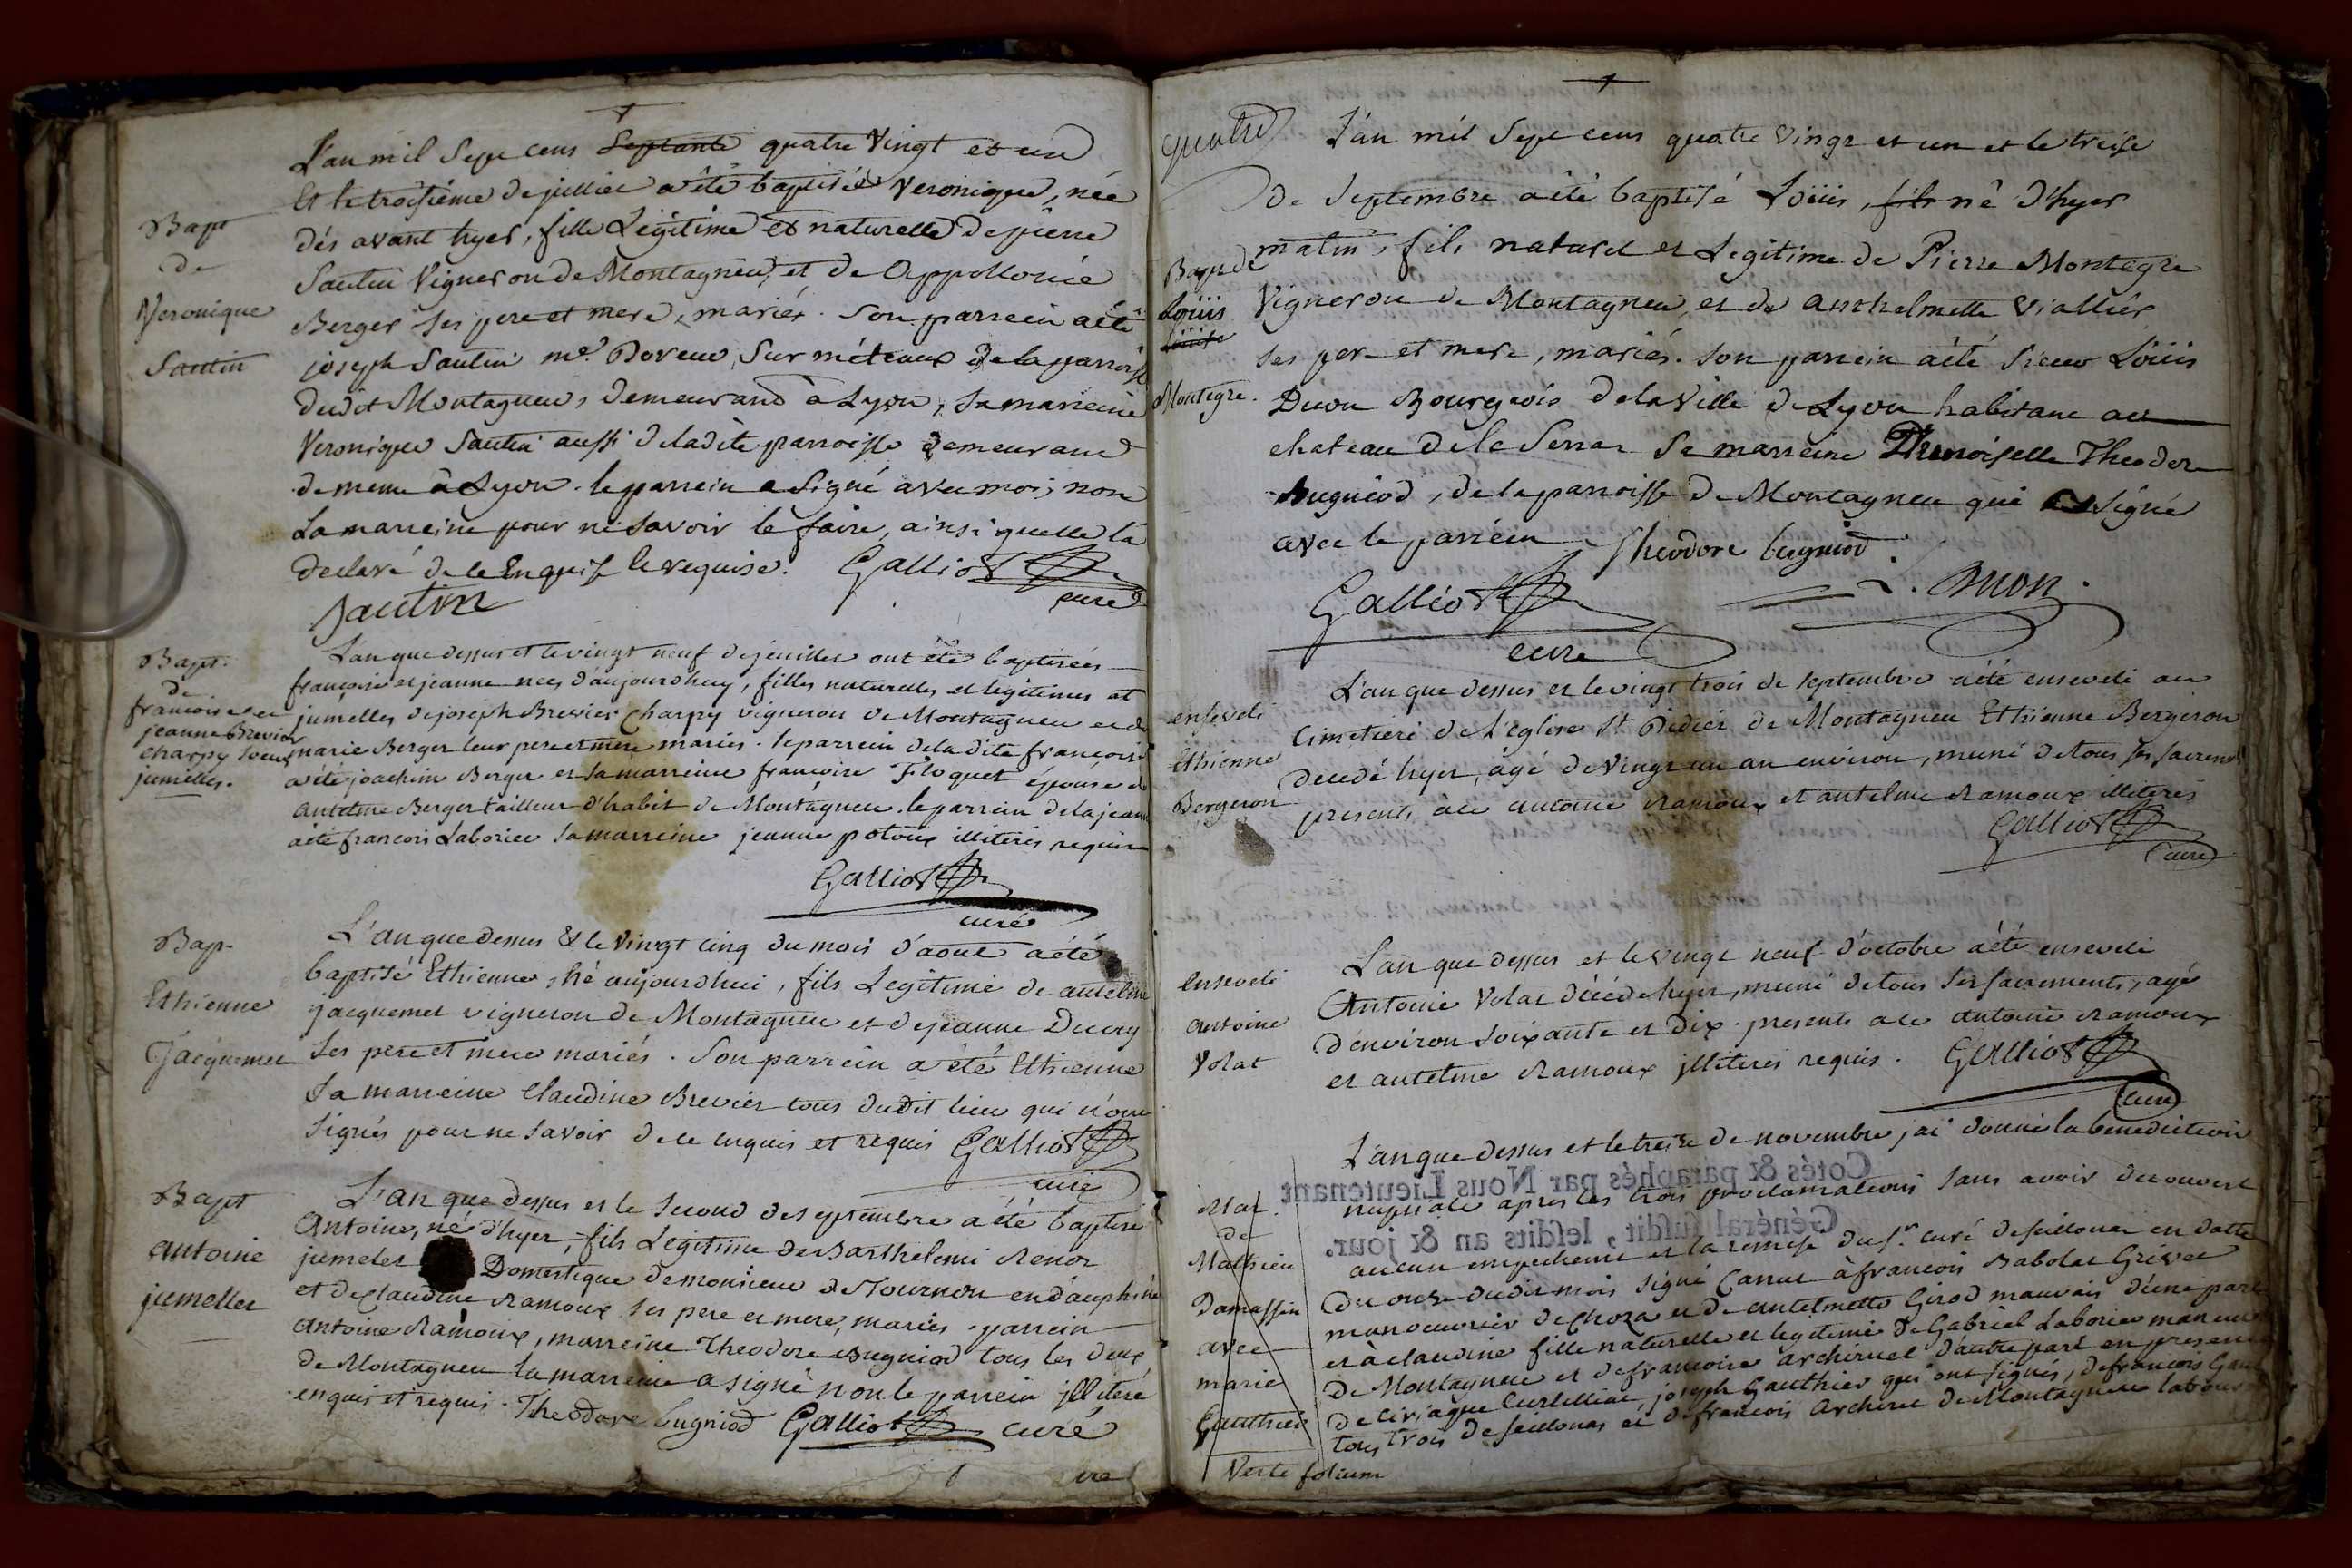 L'an mil Sept cens Septante quatre Vingt et un
Et le troisiéme de juillet a été baptisée Veronique, née
dés avant hyer, fille Légitime et naturelle de pierre
Bapt
de
Veronique
Sautin
Sautin Vigneron de Montagneu, et de Appollonie
Berger ses pere et mere, mariés. Son parrein a été
joseph Sautin me. Doreur Sur méteaux de la parroisse
dudit Montagneu, demeurand à Lyon, sa marreine
Veronique Sautin aussi de ladite parroisse demeurand
de meme à Lyon. le parrein a Signé avec moi, non
La marreine pour ne Savoir le faire, ainsi quelle la
declaré de ce Enquise le requise. Galliot
curé
Sautin
Bapt.
de
francoise et
jeanne Brevier
charpy soeurs
jumelles.
L'an que dessus et le vingt neuf de jeuillet ont été baptisées
françoise et jeanne nées d'aujourdhuy, filles naturelles et legitimes et
jumelles de joseph Brevier Charpy vigneron de Montagneu et de
marie Berger leur pere et mere mariés. le parrein de la dite françoise
a été joachim Berger et sa marreine françoise Floquet épouse de
antelme Berger tailleur d'habit de Montagneu. le parrein de la jeanne
a été francois Laborier sa marreine jeanne potoux illiterés requis
Galliot
curé
Bap.
Ethienne
jacquemet
L'an que dessus & le Vingt cinq du mois d'aout a été
baptisé Ethienne, né aujourdhui, fils Legitime de antelme
jacquemet vigneron de Montagneu et de jeanne Ducry
ses pere et mere mariés. Son parrein a été Ethienne
sa marreine Claudine Brevier tous dudit lieu qui n'ont
signés pour ne savoir de ce enquis et requis Galliot
curé
Bapt
antoine
jumellet
L'an que dessus et le second de septembre a été baptisé
Antoine, né d'hyer, fils Legitime de Barthelemi Renor
jumelet Domestique de monsieur de Tournon en dauphiné
et de Claudine Ramoux ses pere et mere, mariés. parrein
antoine Ramoux, marreine Theodore Bugniod tous les deux
de Montagneu la marreine a signé non le parrein illiteré
enquis et requis. Theodore bugniod Galliot curé
quatre
L'an mil Sept cens quatre Vingt et un et le treise
de Septembre a été baptisé Loüis, fils né d'hyer
Bapt de
Loüis
Louise
Montegre.
matin, fils naturel et Legitime de Pierre Montegre
Vigneron de Montagneu, et de Anthelmette Viallier
ses pere et mere, mariés. Son parrein a été Sieur Loüis
Duon Bourgeois de la Ville de Lyon habitant au
chateau de la Serraz sa marreine Demoiselle Theodore
Bugniod, de la parroisse de Montagneu qui a signé
avec le parrein Theodore bugniod.
Galliot
curé
L. Duon.
enseveli
Ethienne
Bergeron
L'an que dessus et le vingt trois de septembre a été enseveli au
Cimetiere de l'eglise St Didier de Montagneu Ethienne Bergeron
decedé hyer, agé de vingt un an environ, muni de tous ses sacrements
presents a ce antoine Ramoux et antelme Ramoux illiterés
Galliot
curé
enseveli
antoine
Volat
L'an que dessus et le vingt neuf d'octobre a été enseveli
Antoine Volat décédé hyer, muni de tous ses sacrements, agé
d'environ soixante et dix. presents a ce antoine Ramoux
et antelme Ramoux illiterés requis. Galliot
curé
Mar.
de
Mathieu
Damassin
avec
marie
Gauthier
L'an que dessus et le treize de novembre jai donné la benediction
nuptiale apres les trois proclamations sans avoir decouvert
aucun empechement et la remise du Sr. curé de seillonaz en datte
du onze dudit mois signé Carrut à francois Babolat Grivet
manoeuvrier de choza et de antelmette Girod mauvais d'une part
et à claudine fille naturelle et legitime de Gabriel Laborier
de Montagneu et de francoise archiruel d'autre part en presence
de Ciriaque Curtelliat, joseph Gauthier qui ont signés, de francois
tous trois de seillonas et de francois Archiruel de Montagneu
Verte folium
Cotés & paraphés par Nous Lieutenant
Général susdit, lesdits an & jour.